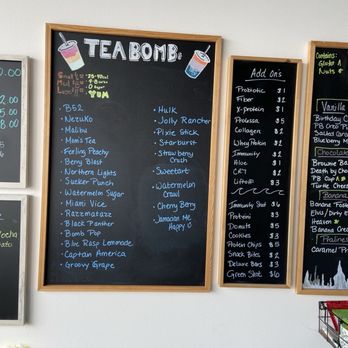 0.00
2.00
5.00
8.00
Mocha
TEA BOMBS
25-40cal
0 sugar
YUM
• B52
• Nezuko
• Malibu
• Mom's Tea
• Feeling Peachy
• Berry Blast
• Northern Lights
• Sucker Punch
• Watermelon Sugar
• Miami Vice
• Razzmatazz
• Black Panther
• Bomb Pop
• Blue Rasp Lemonade
• Captain America
• Groovy Grape
• Hulk
• Jolly Rancher
• Pixie Stick
• Starburst
• Strawberry
Crush
• Sweetart
• Watermelon
Crawl
• Cherry Berry
• Jamacan Me
Happy
Add On's
Probiotic $1
Fiber $2
X-protein $1
Prolessa $5
Collagen $2
Whey Protein $1
Immunity $1
Aloe $1
CR7 $1
Liftoff $3
Immunity Shot $4
Protein $5
Donuts $5
Cookies $3
Protein Chips $3
Snack Bites $2
Deluxe Bars $3
Green Shot $6
Contains:
Gluten
Nuts
Vanilla
Birthday C
PB Oreo P
Salted Caram
Blueberry M
Chocolate
Brownie Ba
Death by Cho
PB Cup
Turtle Chees
Banana
Banana Foste
Elvis/Dirty E
Heaven
Banana
Praline
Caramel Pra